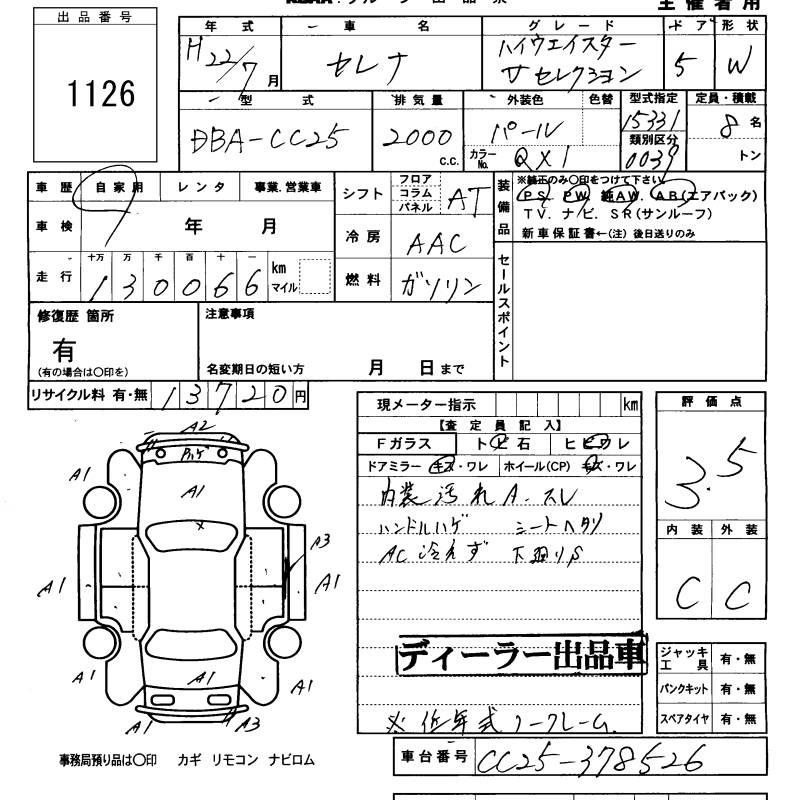 主催者用
出品番号
1126
年式 車名 グレード ドア 形状
H22/7月 セレナ ハイウェイスター Vセレクション 5 W
型式 排気量 外装色 色替 型式指定 定員・積載
DBA-CC25 2000 c.c. パール カラーNo. QX1 15331 8名
類別区分 0039 トン
車歴 自家用 レンタ 事業.営業車
シフト フロア コラム パネル AT
装備品 ※純正のみ〇印をつけて下さい
PS. PW. 純AW. AB(エアバック)
TV. ナビ. SR(サンルーフ)
新車保証書←(注) 後日送りのみ
車検 年 月
冷房 AAC
走行 十万 万 千 百 十 一
130066 km マイル
燃料 ガソリン
セールスポイント
修復歴 箇所
有
(有の場合は〇印を)
注意事項
名変期日の短い方 月 日まで
リサイクル料 有・無 13720円
現メーター指示 km
【査定員記入】
Fガラス トビ石 ヒビワレ
ドアミラー キズ・ワレ ホイール(CP) キズ・ワレ
内装汚れ A.スレ
ハンドルハゲ シートヘタリ
AC冷えず 下廻りS
ディーラー出品車
※低年式ノークレーム.
評価点
3.5
内装 外装
C C
ジャッキ工具 有・無
パンクキット 有・無
スペアタイヤ 有・無
車台番号 CC25-378526
A2
ハゲ
A1
A1
A1
X
A3
A1
A1
A1
A1
A1
A1
A3
事務局預り品は〇印 カギ リモコン ナビロム